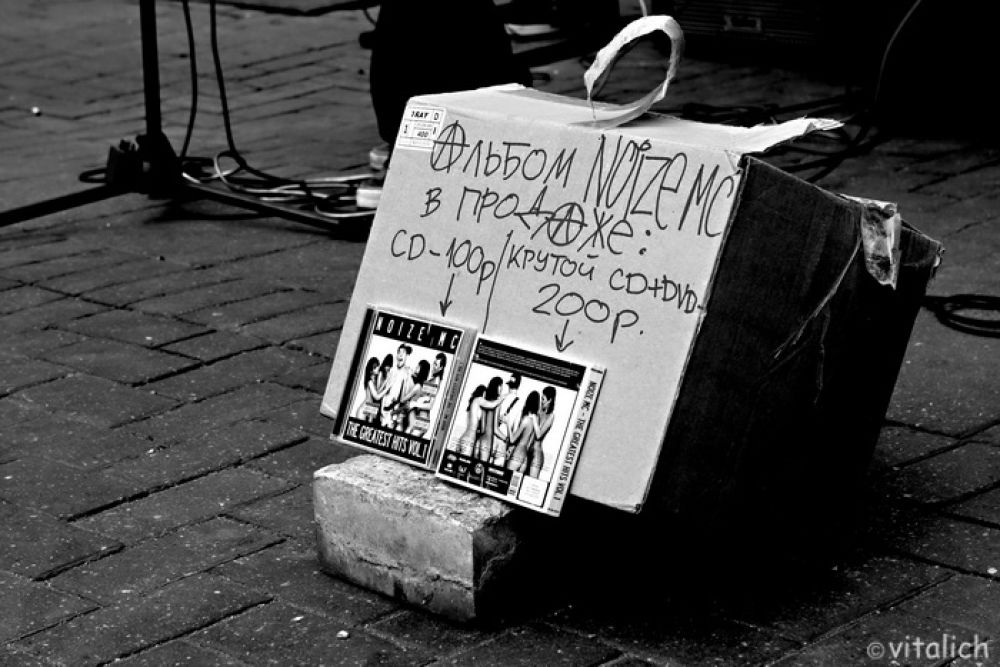 1RAY D
400
Альбом NOIZE MC
в продаже:
CD-100р
крутой CD+DVD-
200р.
NOIZE MC
THE GREATEST HITS VOL.1
NOIZE MC - THE GREATEST HITS VOL.1
©vitalich